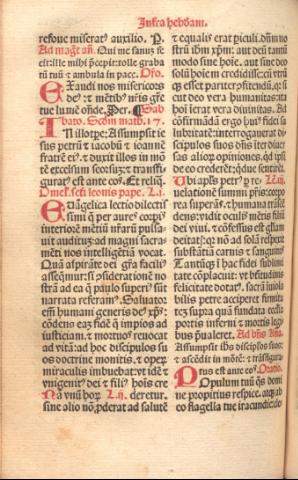 Infra hebdom.
refove miserat⁹ auxilio. ℣.
Ad magt añ. Qui me sanũ fe
cit: ille mihi p̃cepit: tolle graba
tũ tuũ ⁊ ambula in pace. Oro.
Exaudi nos misericors
de⁹: ⁊ mẽtib⁹ nr̃is gr̃e
tue lumẽ oñde. Per. Sab
bato. Scďm math. 17.
In illo tpe: Assumpsit ie
sus petrũ ⁊ iacobũ ⁊ ioannẽ
fratrẽ ei⁹. ⁊ duxit illos in mõ
tẽ excelsum seorsuz: ⁊ transfi
gurat⁹ est ante eos. Et reliq̃.
Omel. scti leonis pape. L. i.
Euãgelica lectio dilectis
simi q̃ per aures corp̃
interiorẽ mẽtiũ nr̃arũ pulsa
uit auditũ: ad magni sacra
mẽti nos intelligẽtiã vocat.
Quã aspirãte dei gr̃a facili⁹
assequimur: si ɔsiderationẽ no
strã ad ea q̃ paulo superi⁹ sũt
narrata referam⁹. Saluator
em̃ humani generis de⁹ xp̃s:
cõdens eaz fidẽ q̃ impios ad
iusticiam. ⁊ mortuos reuocat
ad vitã: ad hoc discipulos su
os doctrine monitis. ⁊ operũ
miraculis imbuebat: vt idẽ ⁊
vnigenit⁹ dei ⁊ fili⁹ hoĩs cre
Nã vnũ hor⁊. L. ij. deretur.
sine alio nõ ꝓderat ad salutẽ
⁊ equalis erat periculi. dñm no
strũ iesum xp̃m: aut deũ tantũ
modo sine hoĩe. aut sine deo
solũ hoiem credidisse: cũ vtrũ
q̃ esset pariter ɔfitendũ. q̃: si
cut deo vera humanitas: ita
hoĩ ĩerat vera diuinitas. Ad
cõfirmãdã ergo hui⁹ fidei sa
lubritatẽ: interrogauerat di
scipulos suos dñs ĩter diuer
sas alior⁊ opiniones. qd ipsi
de eo crederẽt: q̃due sentirẽt.
Ubi apl̃s petr⁹ p re L. iij.
uelationẽ summi pr̃is: corpo
rea superãs. ⁊ humana trãscẽ
dens: vidit oculis mẽtis filiũ
dei viui. ⁊ cõfessus est gl̃iam
deitat⁊: q̃ nõ ad solã respexit
substãtiã carnis ⁊ sanguis
Tantũq̃ ĩ hac fidei sublimi
tate cõplacuit: vt b̃titudinis
felicitate dotat⁹. sacrã inuio
bilis petre acciperet firmita
tez supra quã fundata eccl̃ia
portis inferni ⁊ mortis legi
bus p̃ualeret. Ad bñs Aña.
Assumpsit iesus discipulos suos:
⁊ ascẽdit in mõtẽ: ⁊ trãsfigura
tus est ante eos. Oratio.
Populum tuũ q̃s domi
ne propitius respice. atq̃ ab
eo flagella tue iracundie: cle